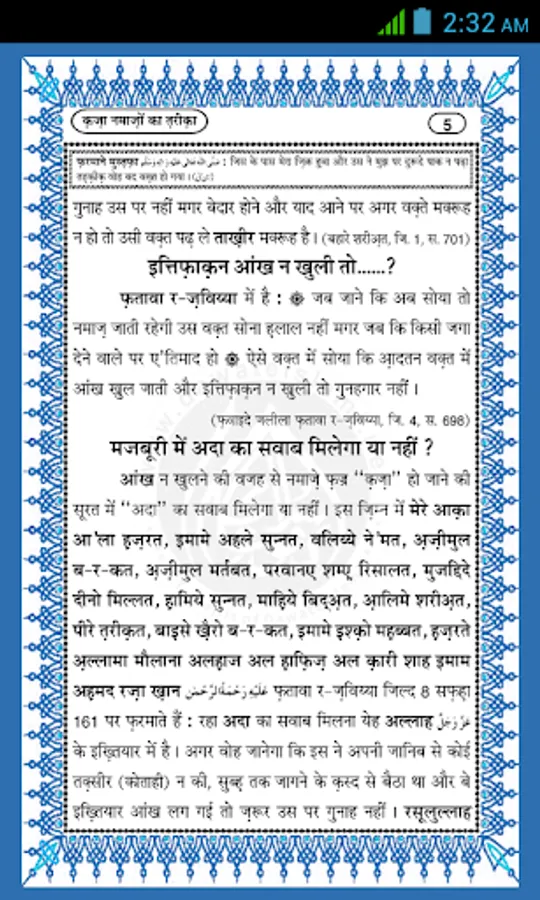 2:32 AM
क़ज़ा नमाज़ों का त़रीक़ा
5
फ़रमाने मुस्त़फ़ा صَلَّى اللهُ تَعَالٰى عَلَيْهِ وَاٰلِهٖ وَسَلَّم : जिस के पास मेरा ज़िक्र हुवा और उस ने मुझ पर दुरूदे पाक न पढ़ा
तह़क़ीक़ वोह बद बख़्त हो गया ।
गुनाह उस पर नहीं मगर बेदार होने और याद आने पर अगर वक़्ते मक्रूह
न हो तो उसी वक़्त पढ़ ले ताख़ीर मक्रूह है। (बहारे शरीअ़त, जि. 1, स. 701)
इत्तिफ़ाक़न आंख न खुली तो......?
फ़तावा र-ज़विय्या में है : ۞ जब जाने कि अब सोया तो
नमाज़ जाती रहेगी उस वक़्त सोना ह़लाल नहीं मगर जब कि किसी जगा
देने वाले पर ए'तिमाद हो ۞ ऐसे वक़्त में सोया कि आ़दतन वक़्त में
आंख खुल जाती और इत्तिफ़ाक़न न खुली तो गुनहगार नहीं ।
(फ़वाइदे जलीला फ़तावा र-ज़विय्या, जि. 4, स. 698)
मजबूरी में अदा का सवाब मिलेगा या नहीं ?
आंख न खुलने की वजह से नमाज़े फ़ज्र “क़ज़ा” हो जाने की
सूरत में “अदा” का सवाब मिलेगा या नहीं। इस ज़िम्न में मेरे आक़ा
आ'ला ह़ज़रत, इमामे अहले सुन्नत, वलिय्ये ने'मत, अ़ज़ीमुल
ब-र-कत, अ़ज़ीमुल मर्तबत, परवानए शम्ए़ रिसालत, मुजद्दिदे
दीनो मिल्लत, ह़ामिये सुन्नत, माह़िये बिदअ़त, आ़लिमे शरीअ़त,
पीरे त़रीक़त, बाइ़से ख़ैरो ब-र-कत, इमामे इ़श्क़ो मह़ब्बत, ह़ज़रते
अ़ल्लामा मौलाना अलह़ाज अल ह़ाफ़िज़ अल क़ारी शाह इमाम
अह़मद रज़ा ख़ान عَلَيْهِ رَحْمَةُ الرَّحْمٰن फ़तावा र-ज़विय्या जिल्द 8 सफ़ह़ा
161 पर फ़रमाते हैं : रहा अदा का सवाब मिलना येह अल्लाह عَزَّوَجَلَّ
के इख़्तियार में है । अगर वोह जानेगा कि इस ने अपनी जानिब से कोई
तक़्सीर (कोताही) न की, सुब्ह़ तक जागने के क़स्द से बैठा था और बे
इख़्तियार आंख लग गई तो ज़रूर उस पर गुनाह नहीं । रसूलुल्लाह